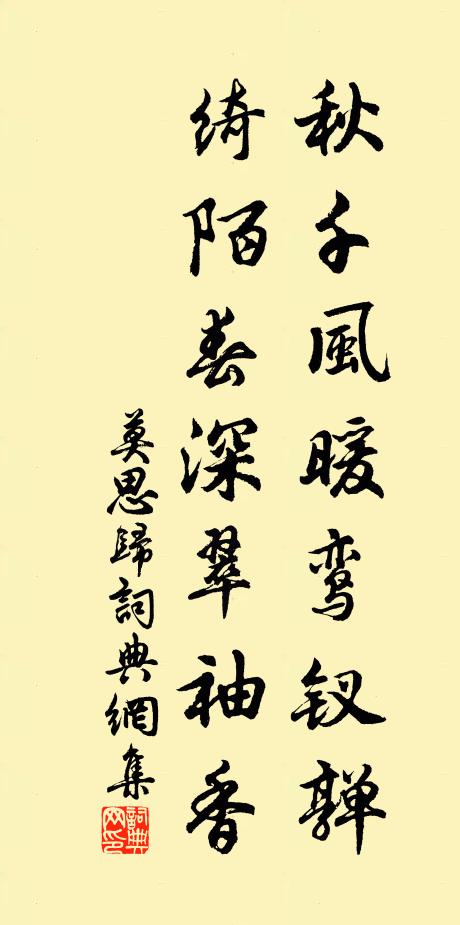 秋千風暖鸾钗嚲
绮陌春深翠袖香
莫思歸詞典網集
詞典网印